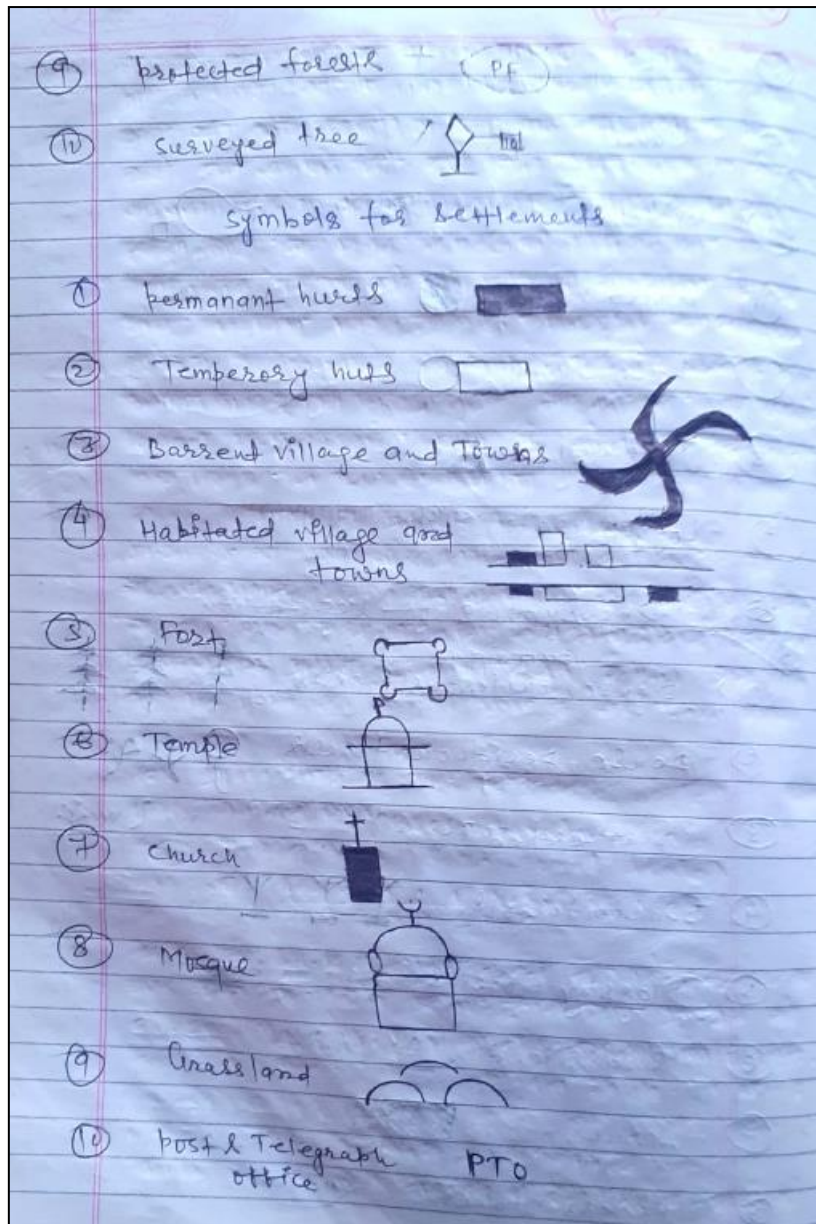 9 protected forests (PF)
10 surveyed tree
symbols for settlements
1 permanant hurts
2 Temperory huts
3 Barrent village and Towns
4 Habitated village and
towns
5 Fort
6 Temple
7 church
8 Mosque
9 Grassland
10 post & Telegraph PTO
office